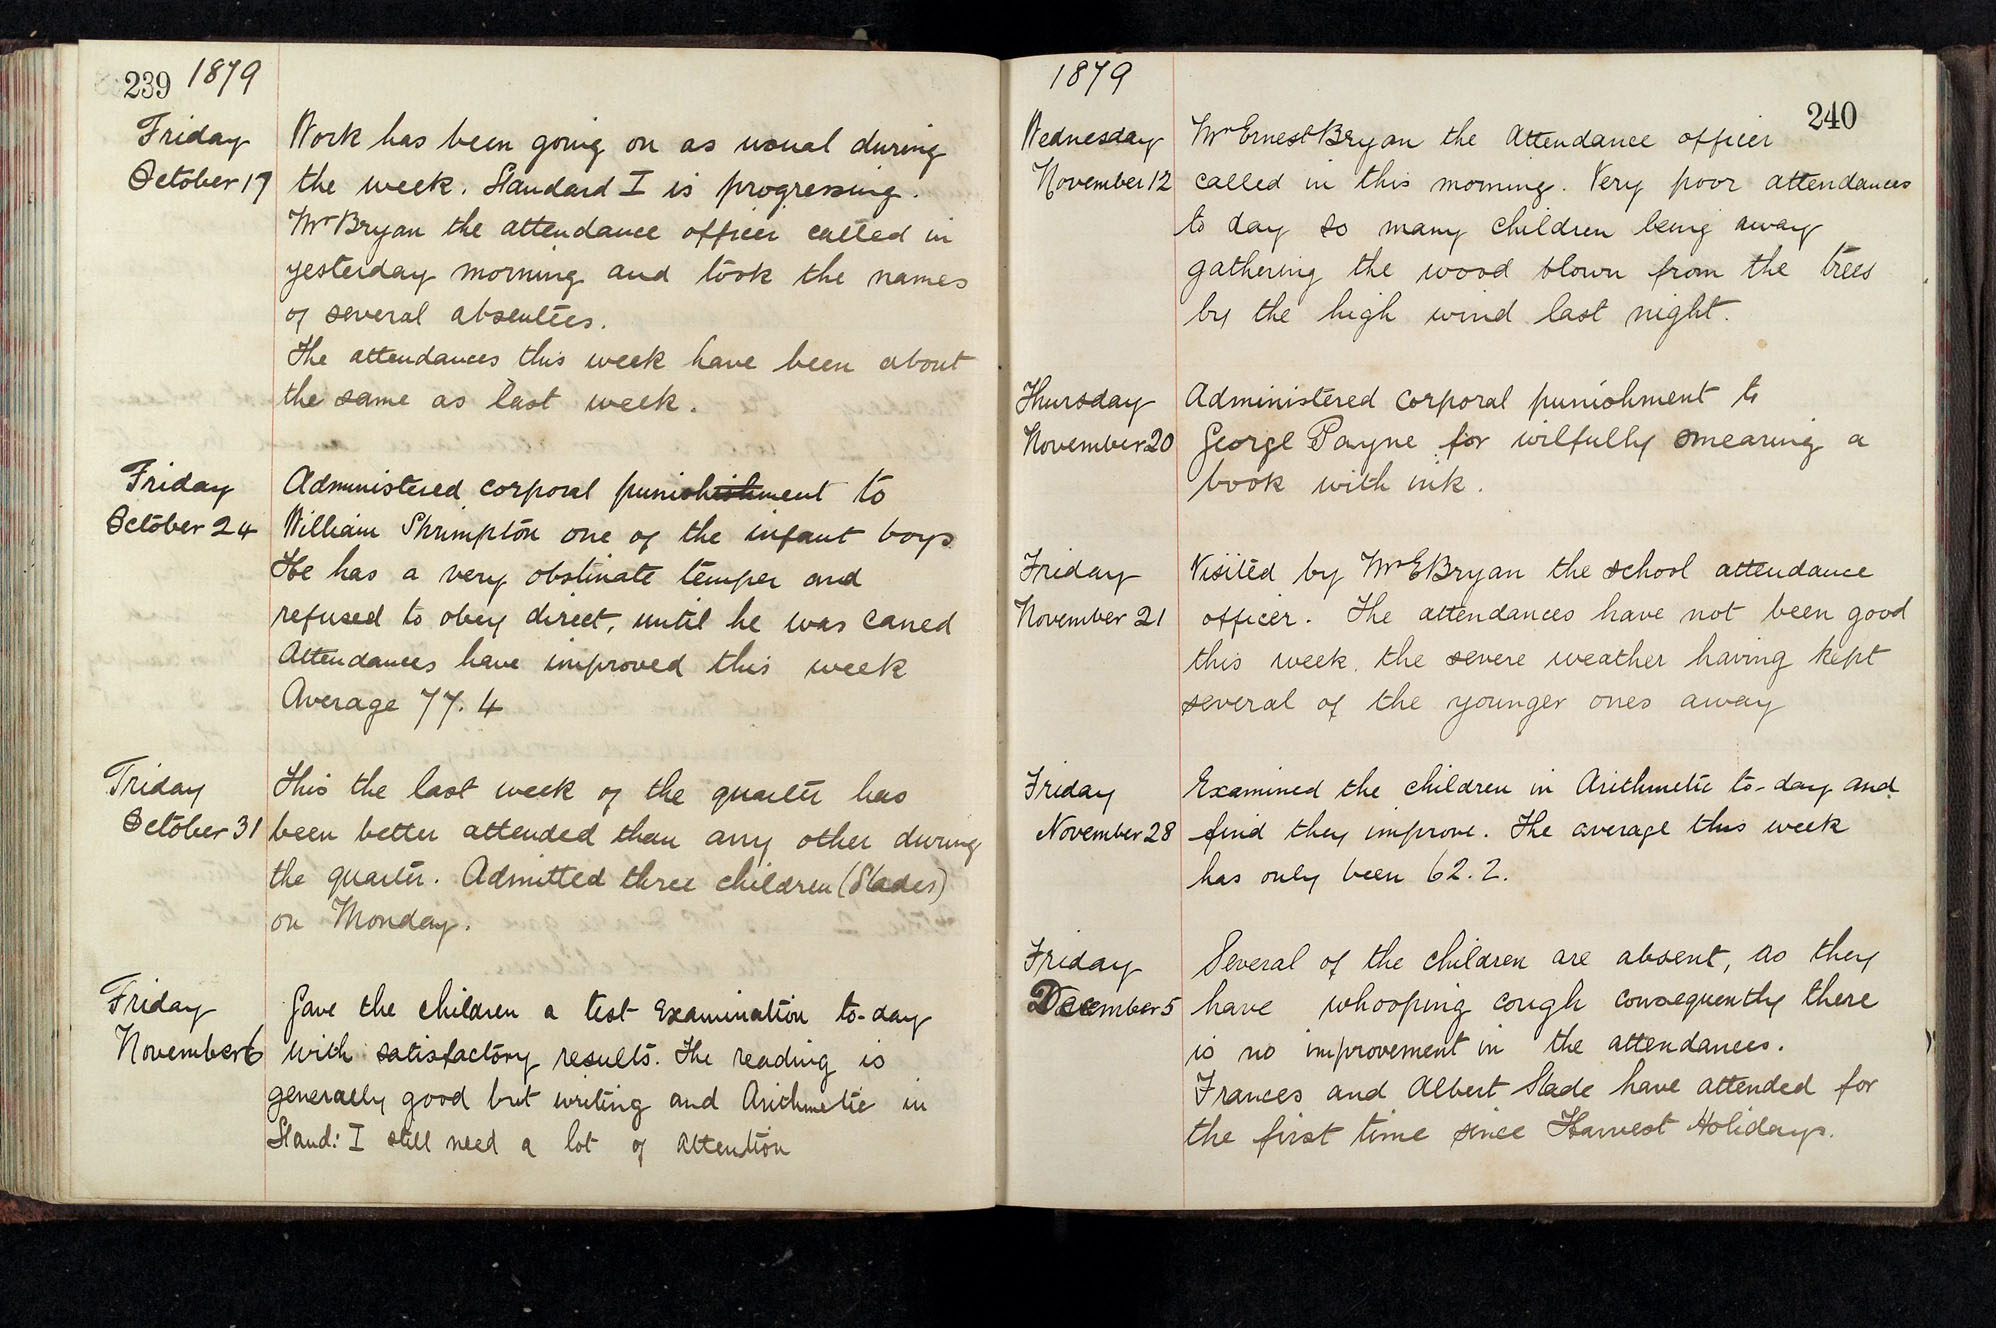 239 1879
Friday
October 17
Work has been going on as usual during
the week. Standard I is progressing.
Mr Bryan the attendance officer called in
yesterday morning and took the names
of several absentees.
The attendances this week have been about
the same as last week.
Friday
October 24
Administered corporal punishishment to
William Shrimpton one of the infant boys
He has a very obstinate temper and
refused to obey direct, until he was caned
Attendances have improved this week
Average 77.4
Friday
October 31
This the last week of the quarter has
been better attended than any other during
the quarter. Admitted three children (Slades)
on Monday.
Friday
November 6
Gave the children a test Examination to-day
with satisfactory results. The reading is
generally good but writing and Arithmetic in
Stand: I still need a lot of attention
1879
240
Wednesday
November 12
Mr Ernest Bryan the Attendance officer
called in this morning. Very poor attendances
to day so many children being away
gathering the wood blown from the trees
by the high wind last night.
Thursday
November 20
Administered corporal punishment to
George Payne for wilfully smearing a
book with ink.
Friday
November 21
Visited by Mr E Bryan the school attendance
officer. The attendances have not been good
this week, the severe weather having kept
several of the younger ones away
Friday
November 28
Examined the children in Arithmetic to-day and
find they improve. The average this week
has only been 62.2.
Friday
December 5
Several of the children are absent, as they
have whooping cough consequently there
is no improvement in the attendances.
Frances and Albert Slade have attended for
the first time since Harvest Holidays.